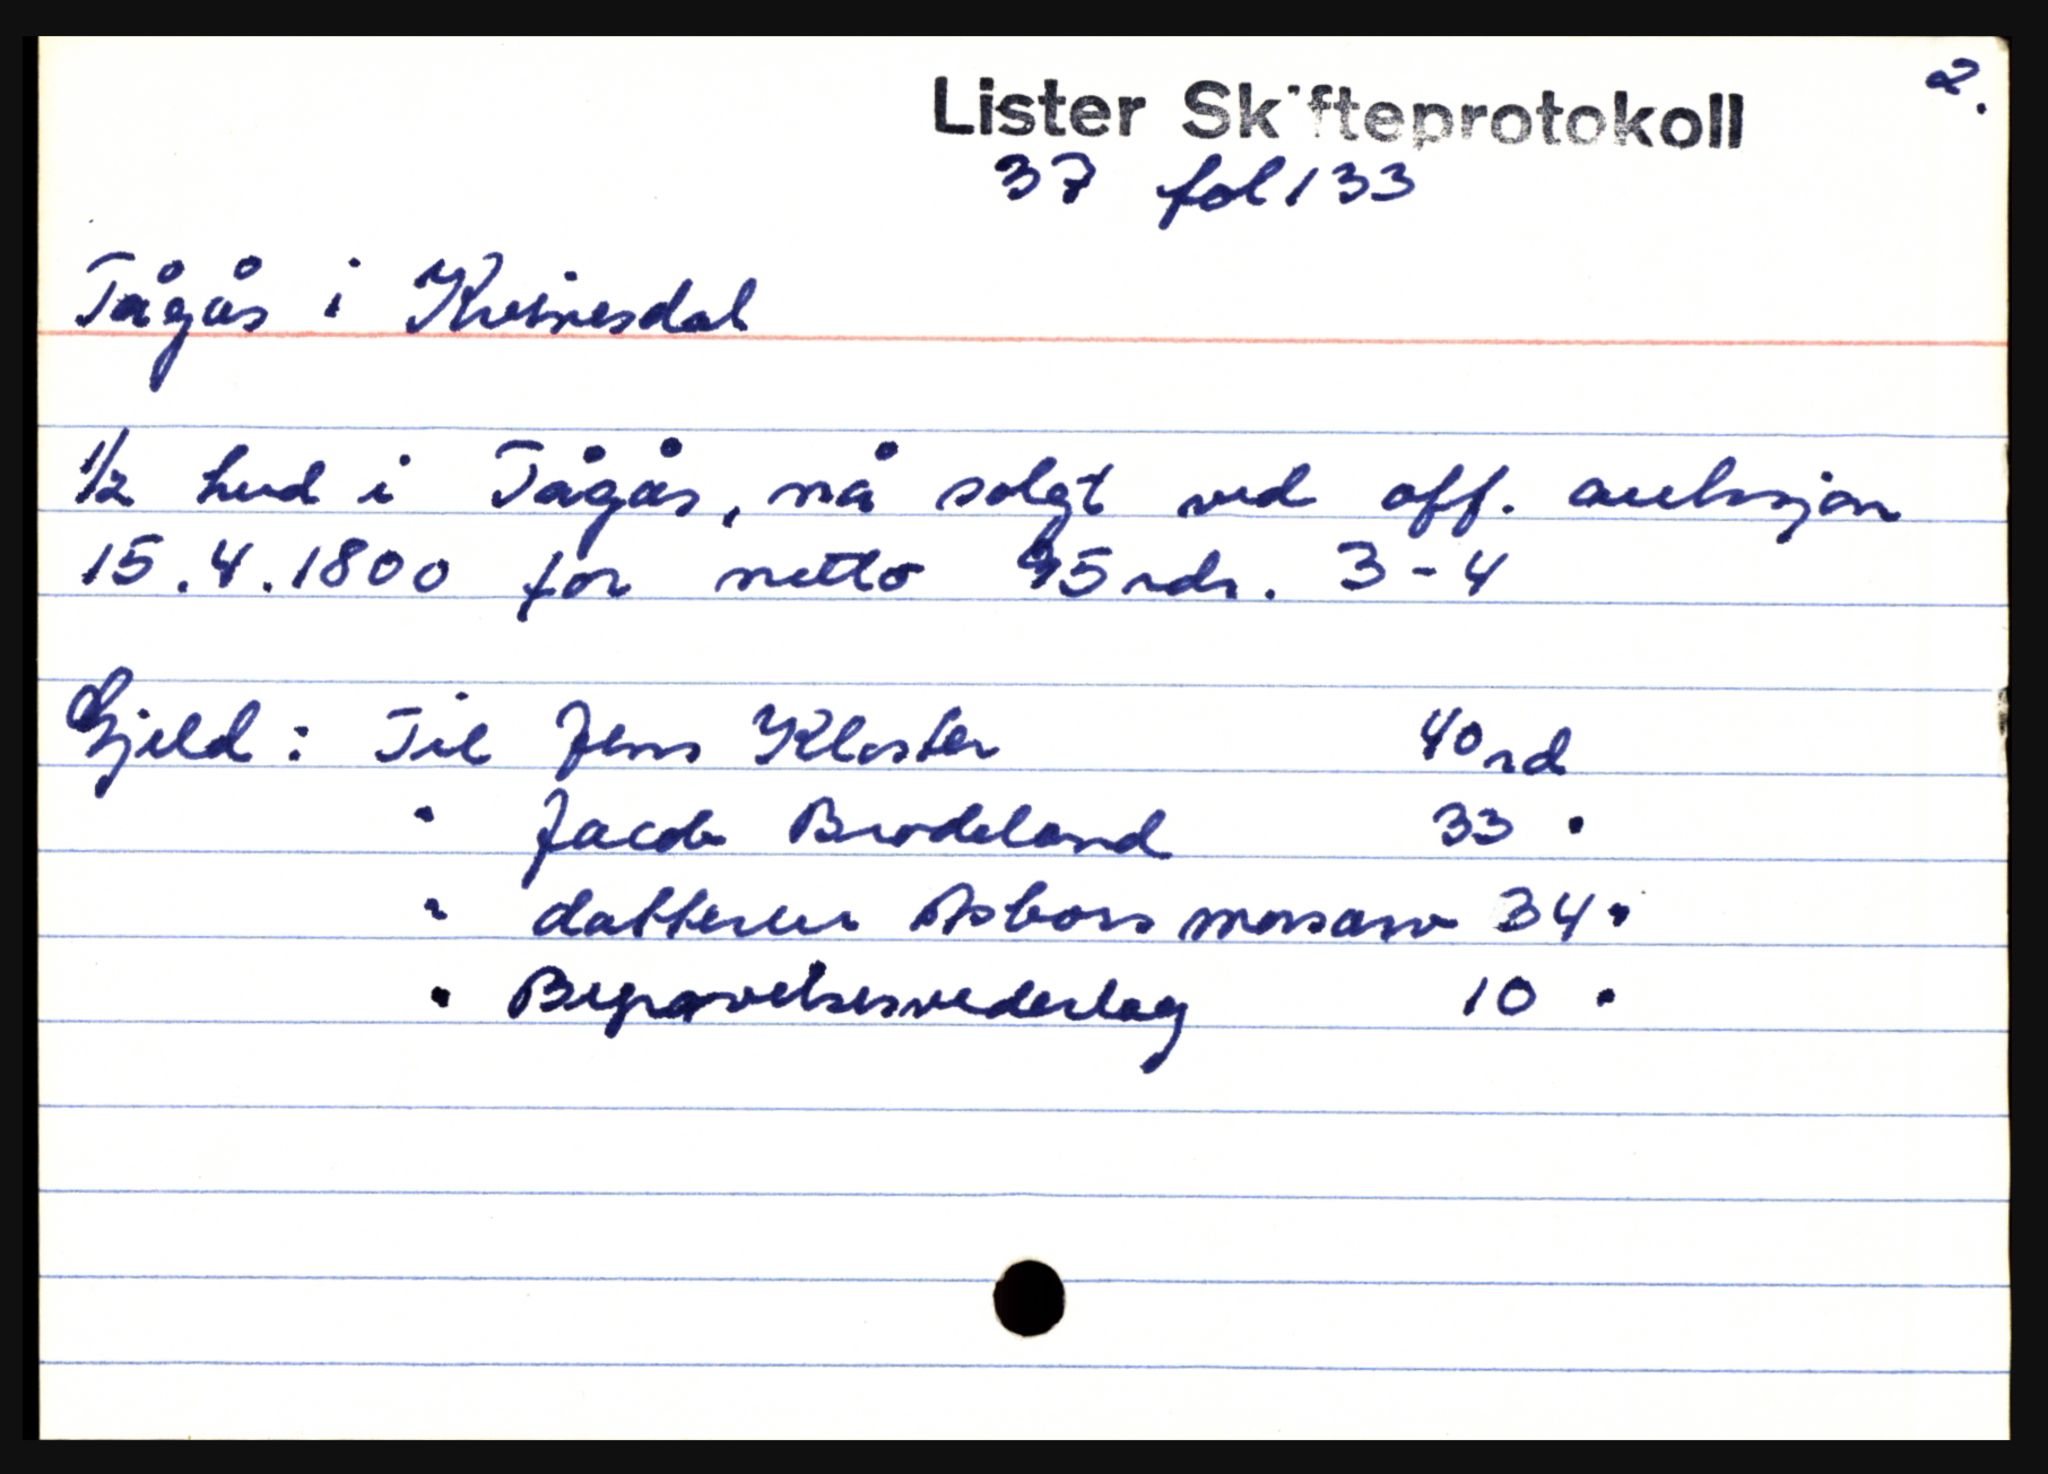 2.
Lister Skifteprotokoll
37 fol 133
Tågås i Kvinesdal
1/2 hud i Tågås, nå solgt ved off. auksjon
15.4.1800 for netto rdr. 3-4
Gjeld: Til Jens Kloster 40 rd
" Jacob Brodeland 33 "
" datteren Asbors morsarv 34 "
" Begravelsesvederlag 10 "